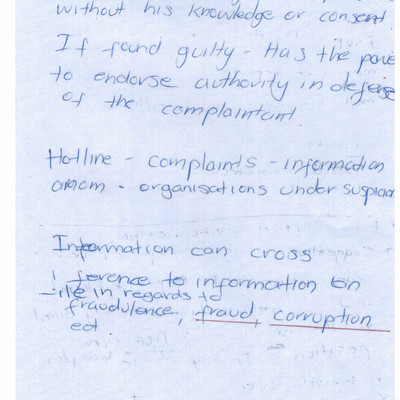 without his knowledge or consent
If found guilty - Has the powe
to endorse authority in defense
of the complaintant.
Hotline - complaints - information
- organisations under suspicion
Information can cross
ference to information on
ile in regards to
fraudulence, fraud, corruption
ect.